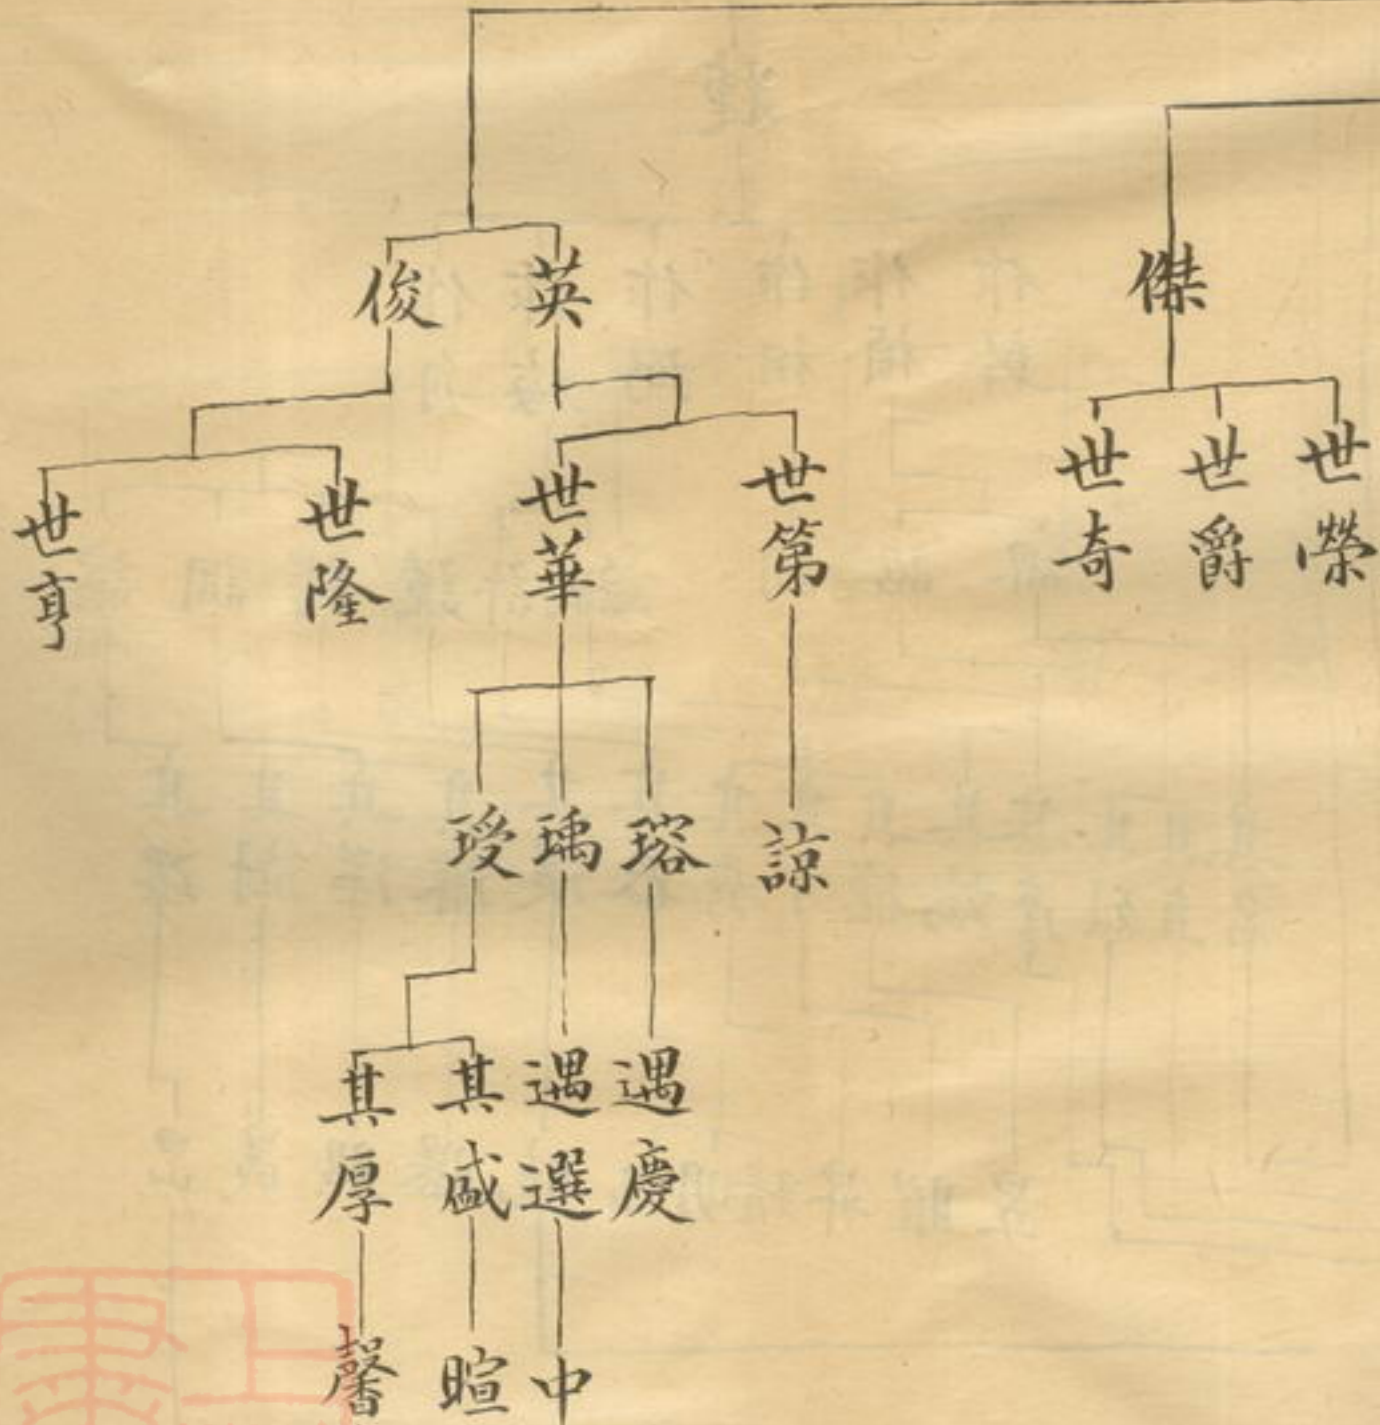 傑
英
俊
世榮
世爵
世奇
世第
世華
世隆
世亨
諒
瑢
瑀
瑷
遇慶
遇選
其盛
其厚
中
暄
馨